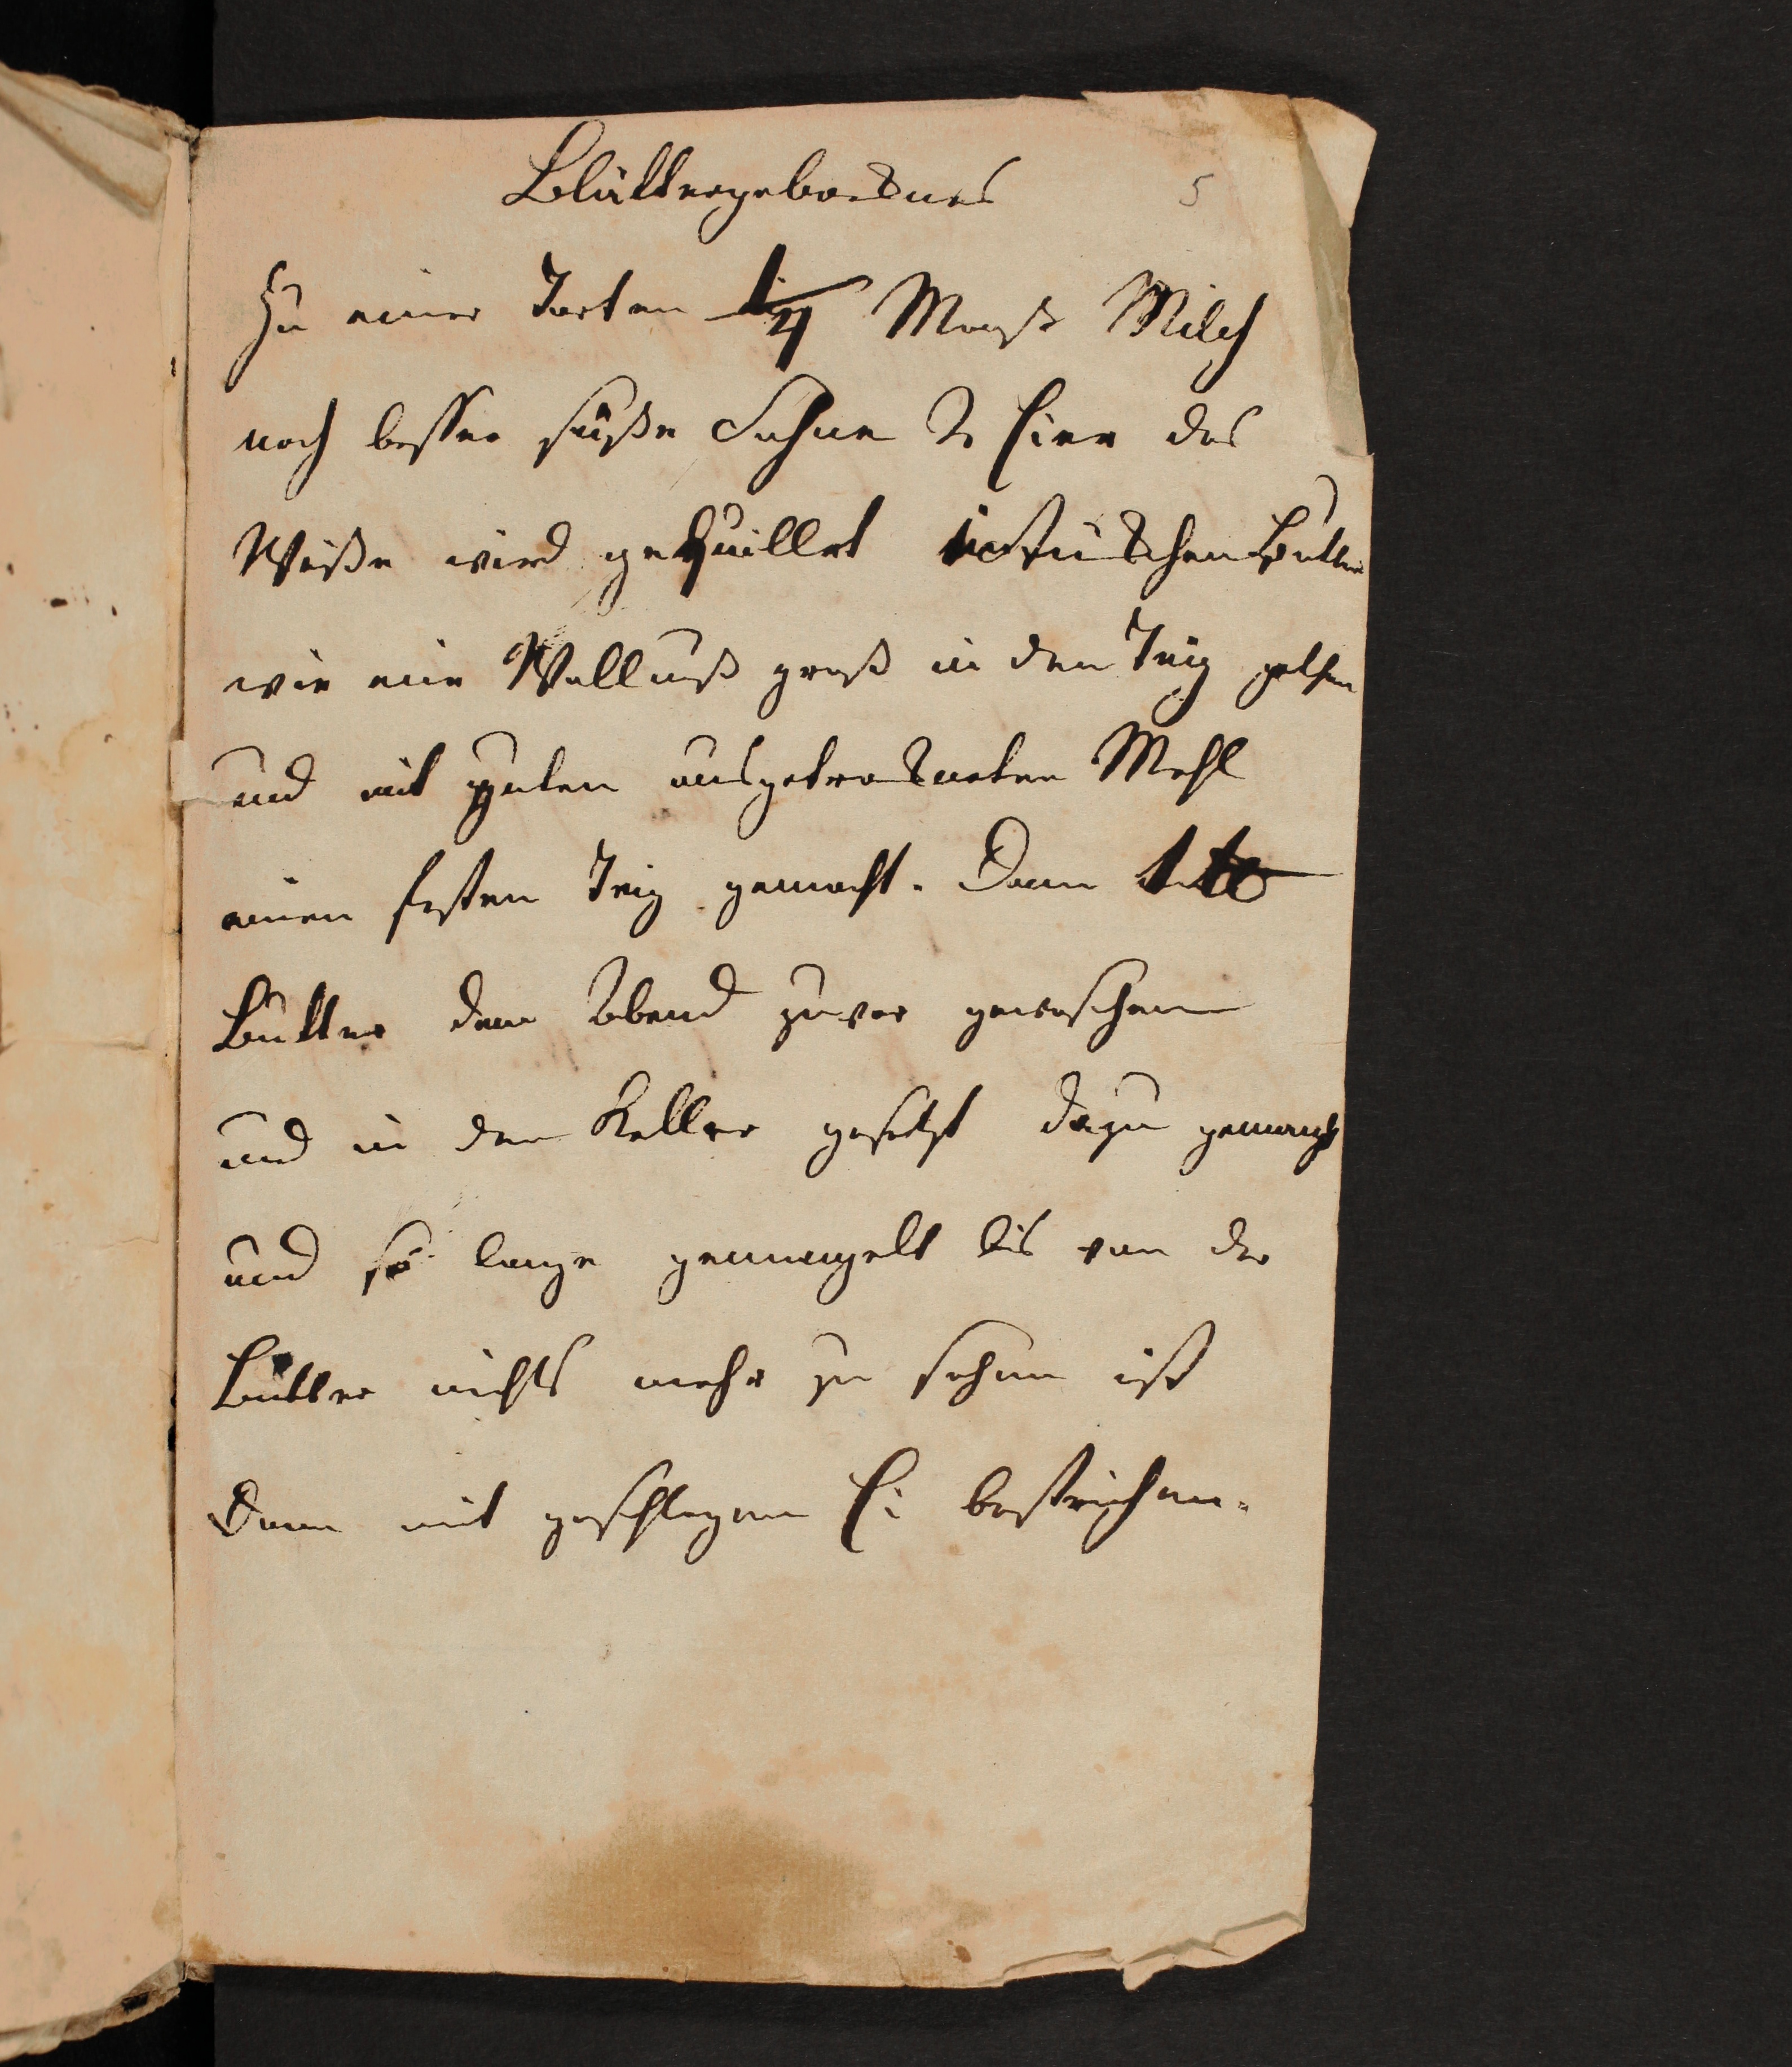 Blättergebacknes 5
Zu einer Torten 1/4 Maaß Milch
noch besser süße Sahne 2 Eier das
Weiße wird gequillet 1 Stückchen Butter
wie eine Wallnuß groß in den Teig gethan
und mit guten ausgetrockneten Mehl
einen festen Teig gemacht. Dann 1 ℔
Butter den Abend zuvor gewaschen
und in den Keller gesetzt dazu gemengt
und so lange gemangelt bis von der
Butter nichts mehr zu sehen ist
Dann mit geschlagenen Ei bestrichen.